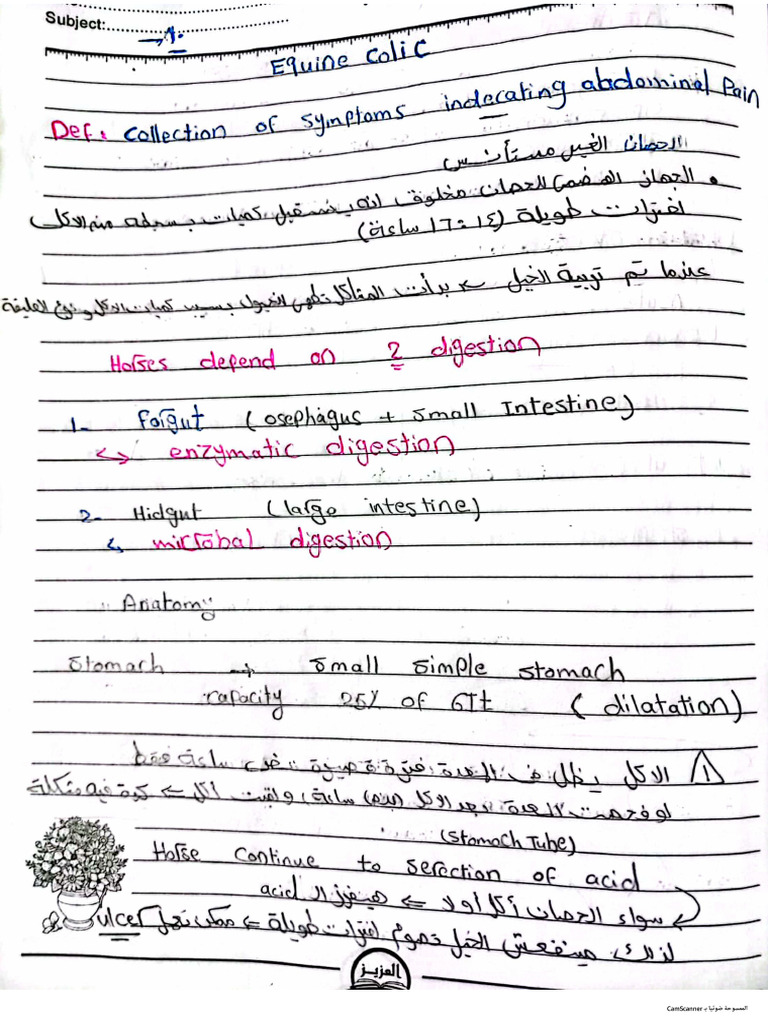 Subject:
→ 1.
Equine Colic
Def: Collection of symptoms indecating abdominal Pain
الحصان الغير مستأنس
• الجهاز الهضمى للحصان مخلوق انه يستقبل كميات بسيطه من الاكل
لفترات طويلة (14:16 ساعة)
عندما تم تربية الخيل ← بدأت المشاكل تظهر بسبب كميات الاكل ونوع العليقة
Horses depend on 2 digestion
1- forgut (osephagus + small Intestine)
enzymatic digestion
2- Hidgut (large intestine)
microbal digestion
Anatomy
Stomach → small simple stomach
capacity 25% of GIt (dilatation)
الاكل يظل فى المعدة فترة قصيرة ساعة فقط
لو فحصت المعدة بعد الاكل ساعة ولقيت أكل ← كدة فيه مشكلة
(Stomach Tube)
Horse continue to serection of acid
سواء الحصان أكل أولا ← هيفرز الـ acid
لذلك مينفعش الخيل تصوم لفترات طويلة ← ممكن تعمل ulcer
المزيز
الممسوحة ضوئيا بـ CamScanner